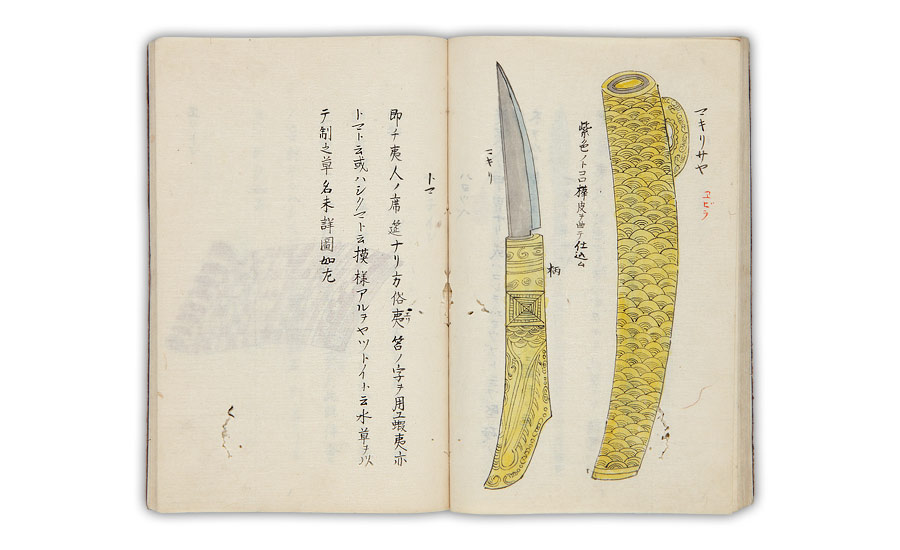 マキリサヤ
ヱビラ
紫色ノトコロ樺皮ヲ曲テ仕込ム
柄
マキリ
トマ
即チ夷人ノ席筵ナリ方俗夷筥ノ字ヲ用ユ蝦夷亦
トマト云或ハシクマト云模様アルヲヤツトイト云水草ヲ以
テ制之草名未詳圖如左